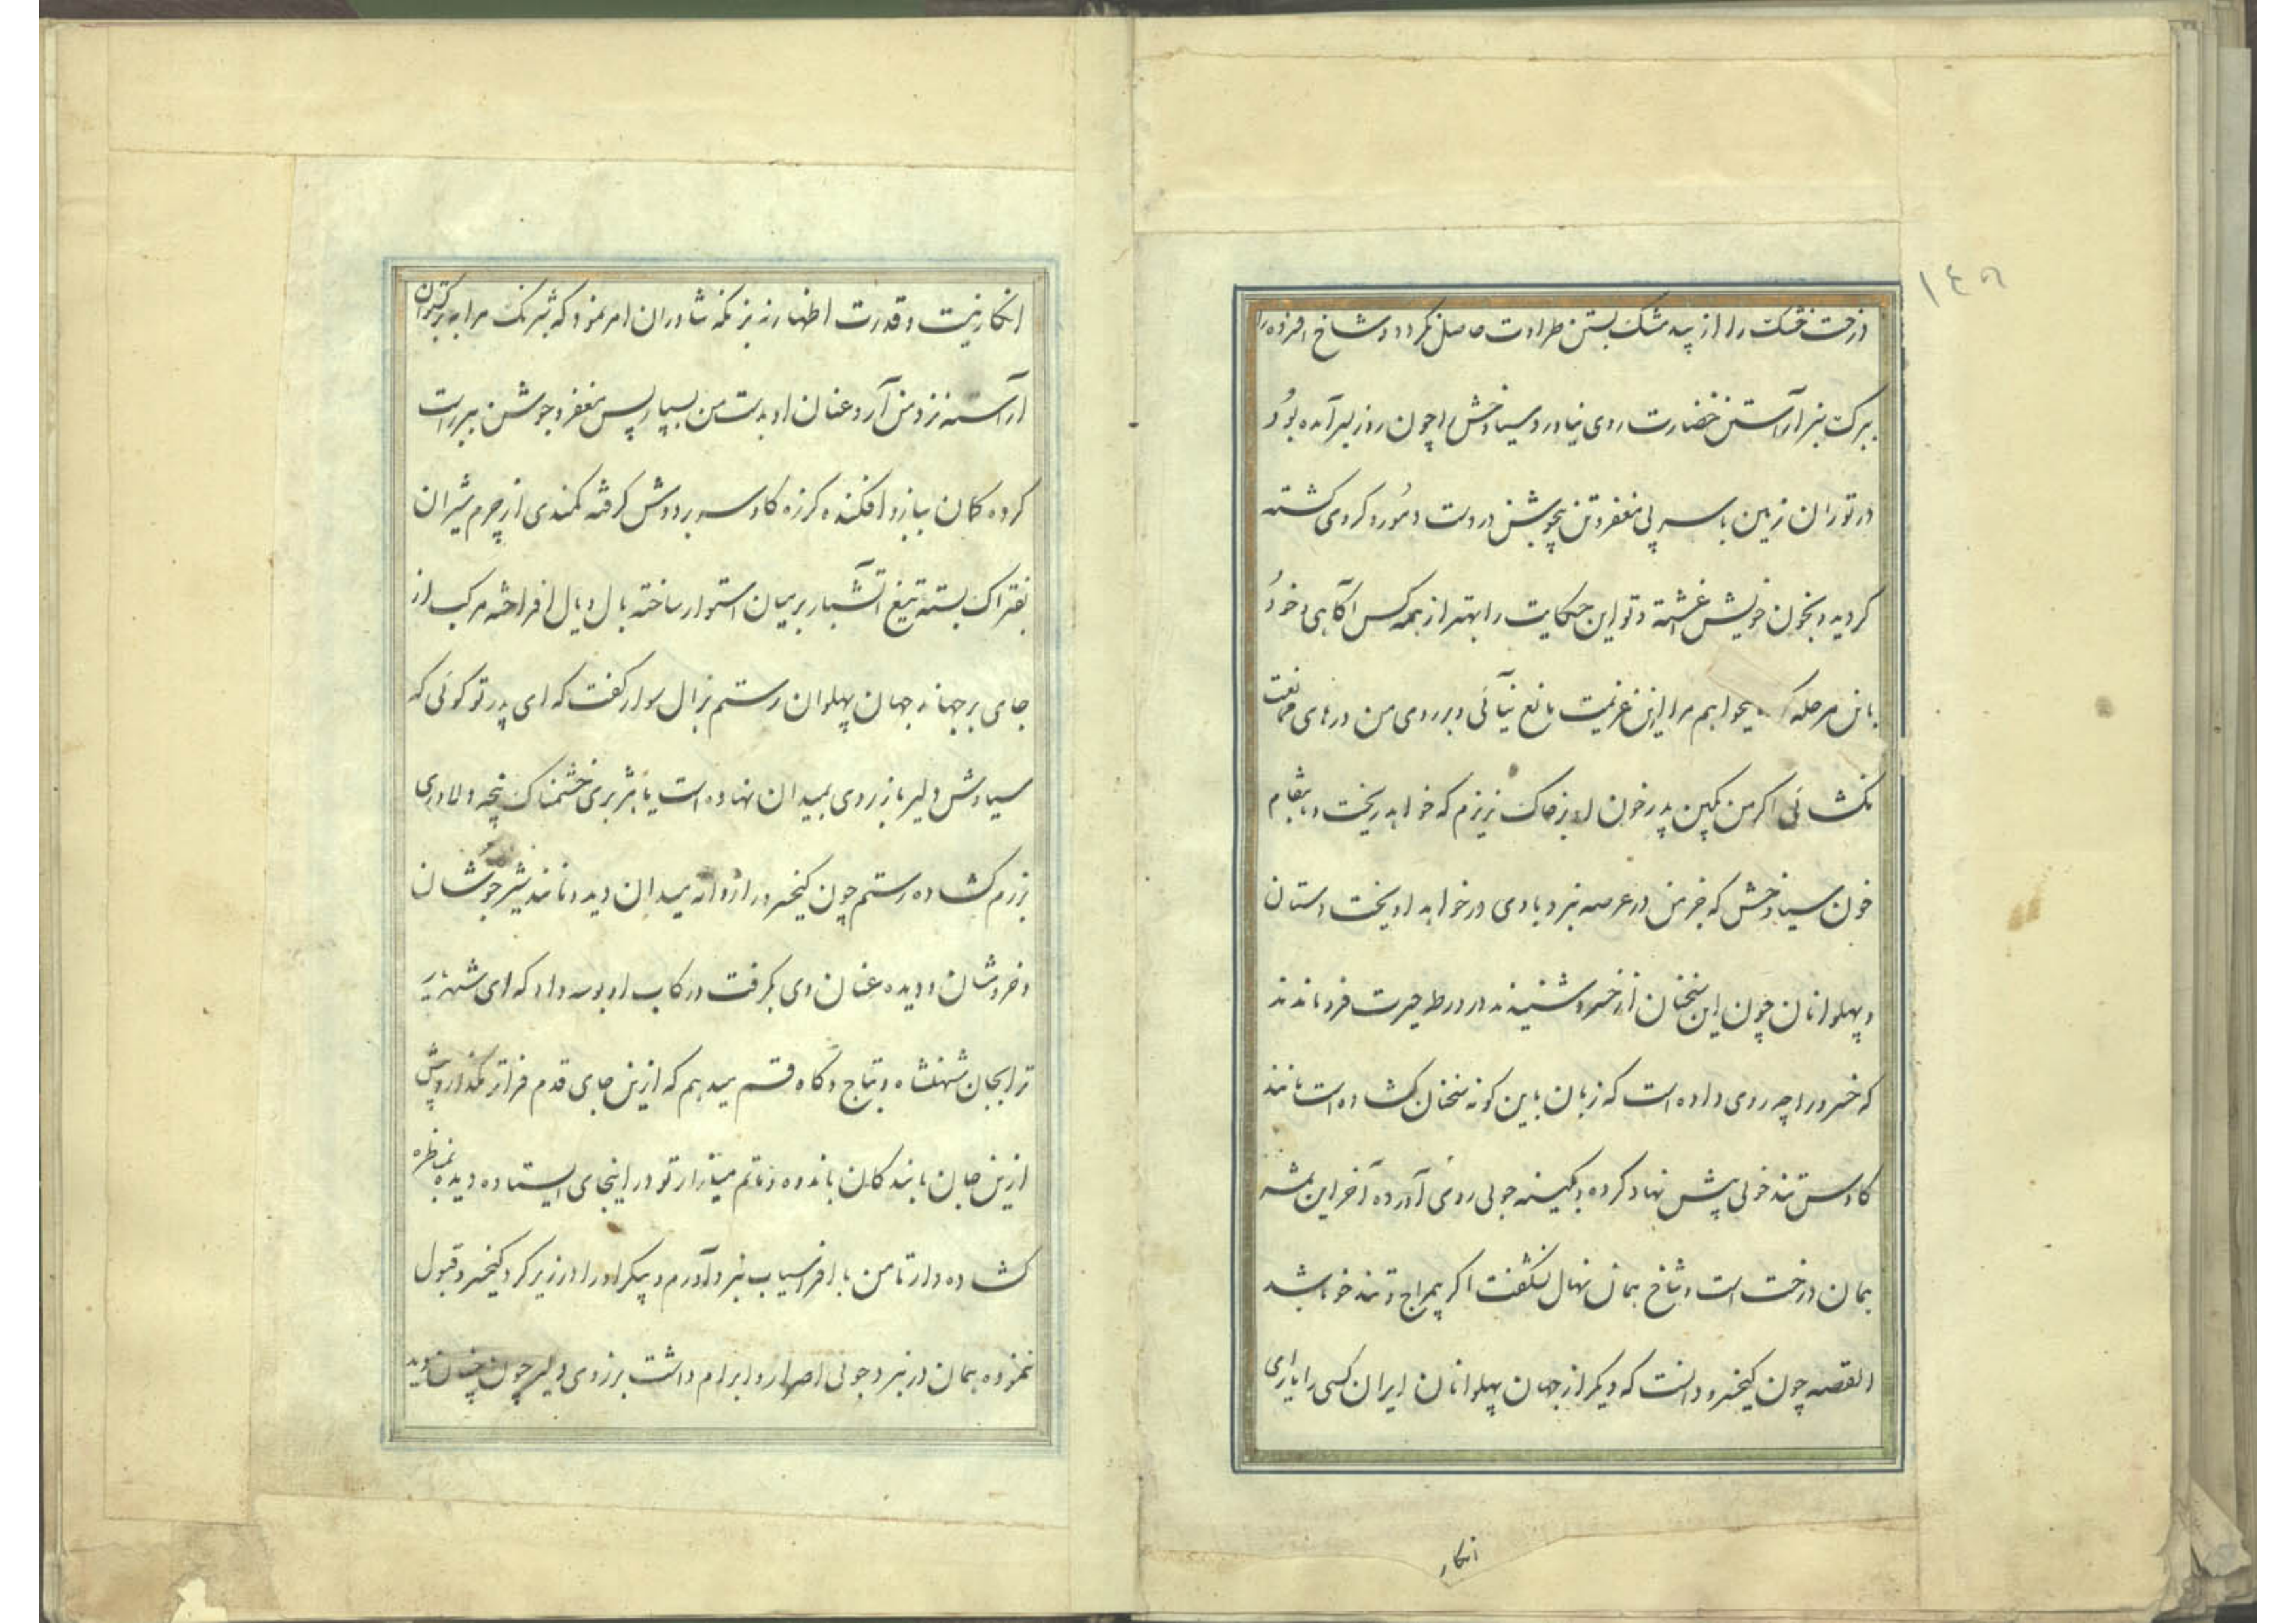 ١٤٥
درخت خشک را از بید مشک بستن طراوت حاصل نکردد و شاخ افزوده را
ببرک سبز آراستن خضارت روی نیاورد سیاوخش را چون روز بسر آمده بود
در توران زمین با سر بی مغفر و تن بیجوشن در دست دمور و کروی کشته
کردید و بخون خویش اغشته و تو این حکایت را بهتر از همه کس آکاهی و خود
باین مرحله میخواهم مرا ازین عزیمت مانع نیائی و بر روی من درهای ممانعت
نکشائی اکر من بکین پدر خون او بر خاک نریزم که خواهد ریخت و بانتقام
خون سیاوخش که جز من در عرصه نبرد با وی در خواهد اویخت دستان
و پهلوانان چون این سخنان از خسرو شنیدند در ورطه حیرت فرو ماندند
که خسرو را چه روی داده است که زبان باین کونه سخنان کشاده است مانند
کاوس تند خوئی پیش نهاد کرده و بکینه جوئی روی آورده آخر این ثمره
همان درخت است و شاخ همان نهال نشکفت اکر بمزاج تو تند خو باشد
القصه چون کیخسرو دانست که دیکر از جهان پهلوانان ایران کسی را یارای
انکار
انکار نیست و قدرت اظهار نه برنکه شاوران امر نمود که شبرنک مرا به برکستوان
آراسته نزد من آر و عنان او بدست من بسپار پس مغفر و جوشن ببر راست
کرده کمان ببازو افکنده کرزه کاوسر بر دوش کرفته کمندی از چرم شیران
بفتراک بسته تیغ آتشبار بر میان استوار ساخته بال و یال افراخته مرکب از
جای برجهاند جهان پهلوان رستم بزال سوار کفت که ای پدر تو کوئی که
سیاوش دلیر باز روی بمیدان نهاده است یا هژبری خشمناک پنجه دلاوری
برزم کشاده رستم چون کیخسرو را روانه میدان دید و مانند شیر جوشان
و خروشان دویده عنان وی بکرفت و رکاب او بوسه داد که ای شهریار
ترا بجان شهنشاه و بتاج و کاه قسم میدهم که ازین جای قدم فراتر مکذار و پیش
ازین جان بندکان باندوه و ماتم میازار تو در اینجای ایستاده دیده بمناظره
کشاده دار تا من با افراسیاب نبرد آورم و پیکر او را در زیر کرد کیخسرو قبول
ننموده همان در نبرد جوئی اصرار و ابرام داشت برزوی دلیر چون چنان دید